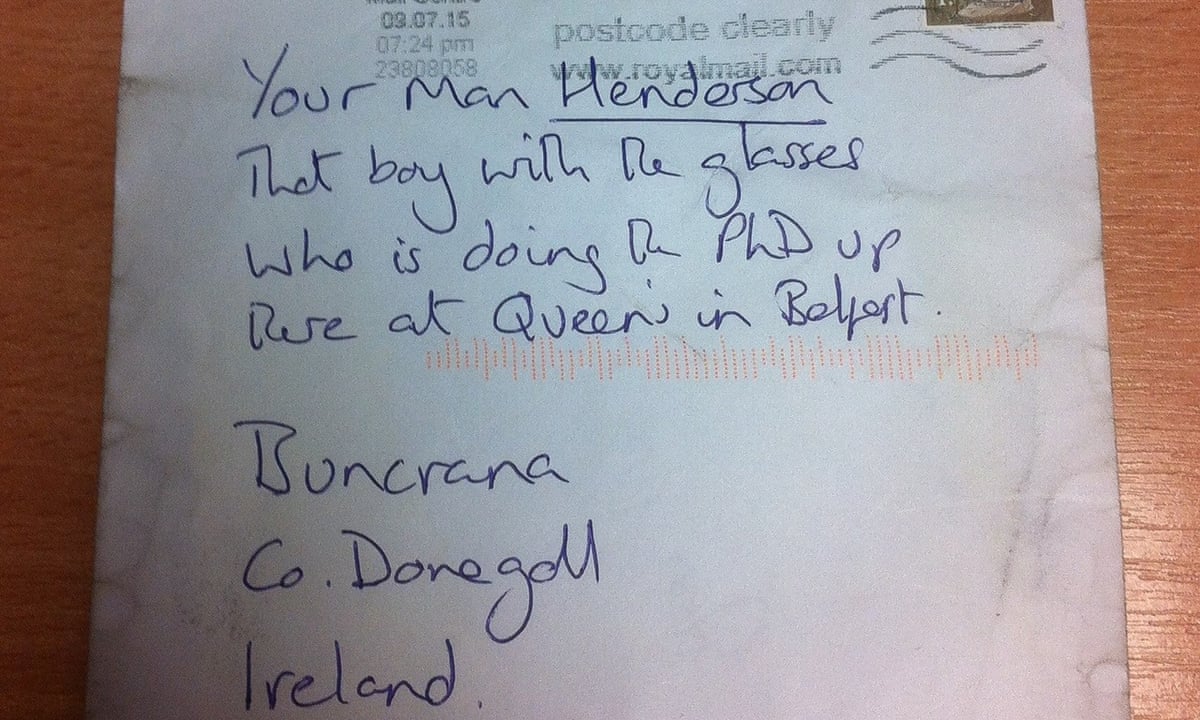 09.07.15
07:24 pm
23808058
postcode clearly
www.royalmail.com
Your Man Henderson
That boy with the glasses
who is doing the PhD up
there at Queen's in Belfast.
Buncrana
Co. Donegall
Ireland.